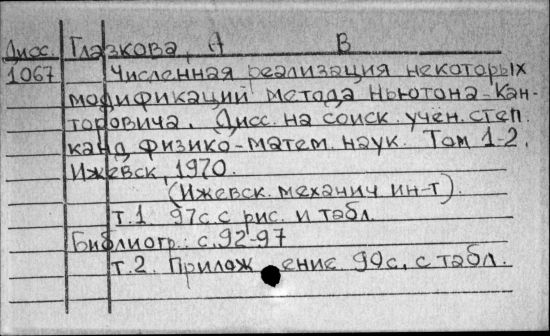 Дисс. Глазкова, А В
1067 Численная реализация некоторых
модификаций метода Ньютона-Кан-
торовича. Дисс. на соиск. учен. степ.
канд. физико-матем. наук. Том 1-2.
Ижевск, 1970.
(Ижевск. механич ин-т).
т.1 97с. с рис. и табл.
Библиогр.: с. 92-97
т.2. Приложение 99с. с табл.